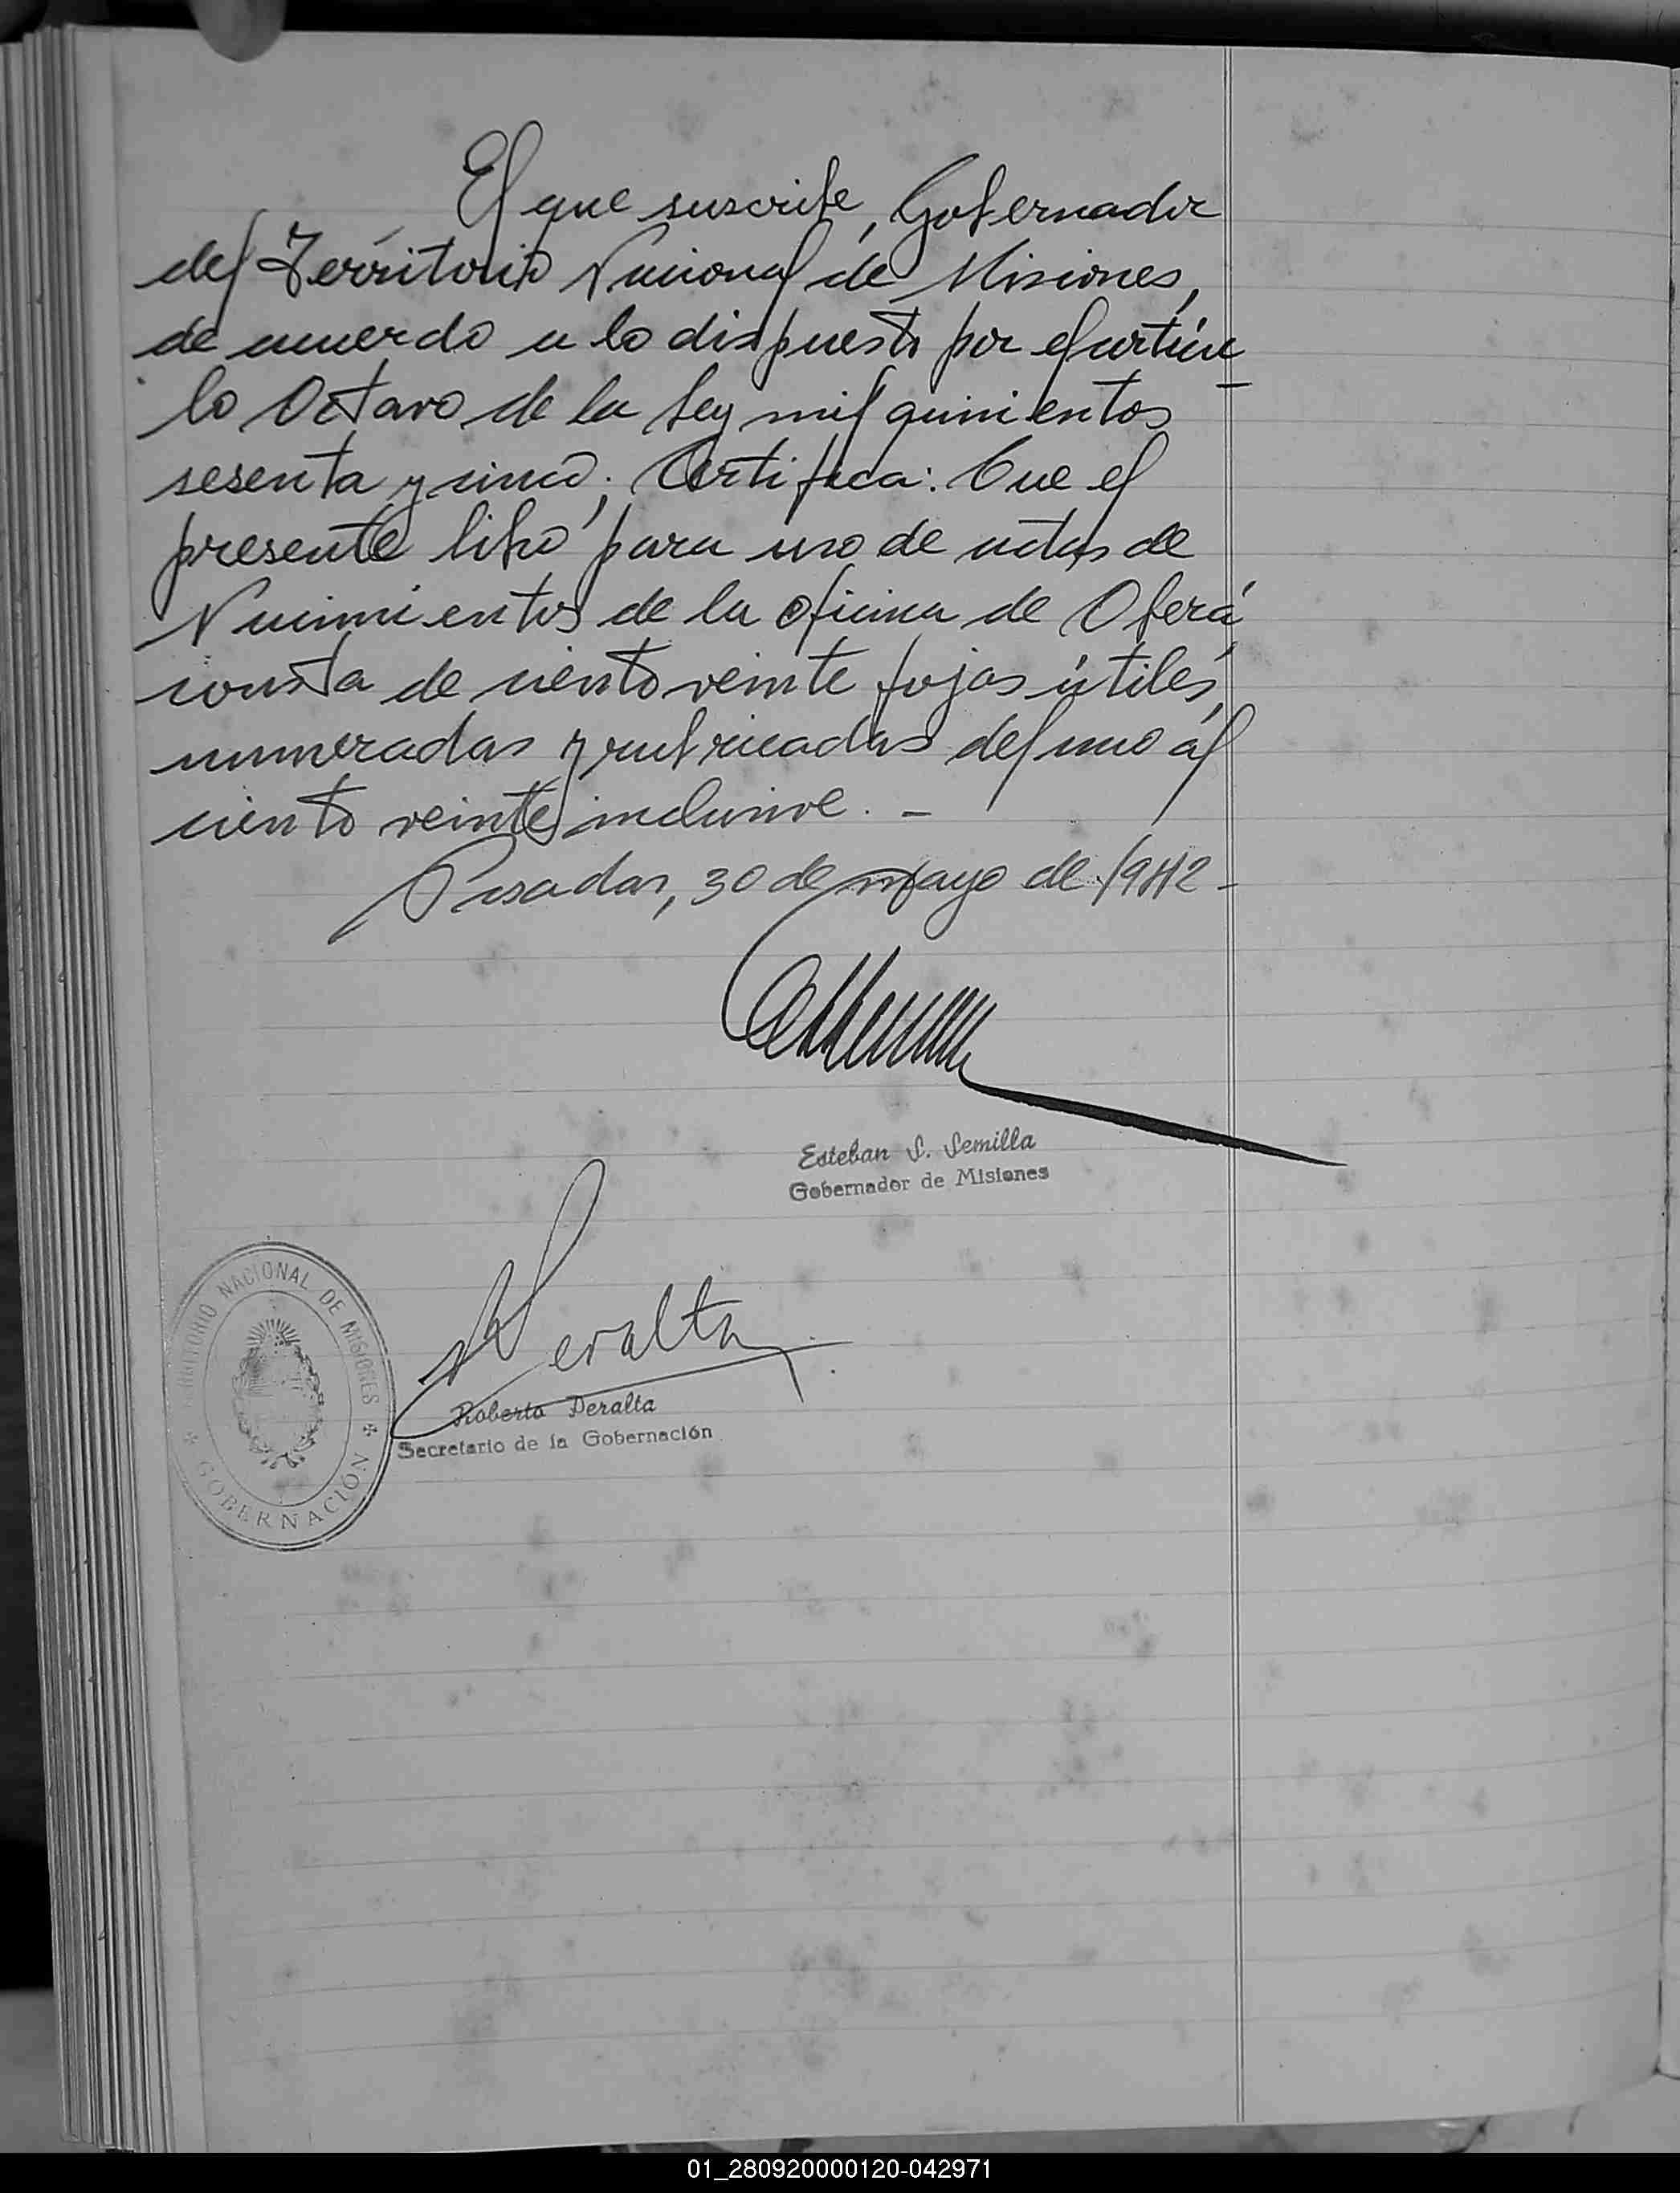 El que suscribe, Gobernador
del Territorio Nacional de Misiones,
de acuerdo a lo dispuesto por el artícu-
lo Octavo de la Ley mil quinientos
sesenta y cinco; Certifica: Que el
presente libro para uso de actas de
Nacimientos de la oficina de Oberá,
consta de ciento veinte fojas útiles,
numeradas y rubricadas del uno al
ciento veinte inclusive. -
Posadas, 30 de mayo de 1942 -
Esteban S. Semilla
Gobernador de Misiones
Peralta
Roberto Peralta
Secretario de la Gobernación
TERRITORIO NACIONAL DE MISIONES
GOBERNACIÓN
01_280920000120-042971